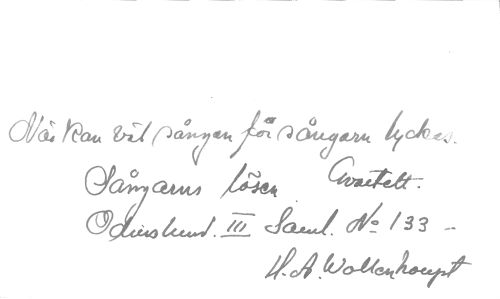 När kan väl sången för sångarn lyckas.
Sångarns lösen Qvartett.
Odinslund. III Saml. No 133 –
H. A. Wollenhaupt